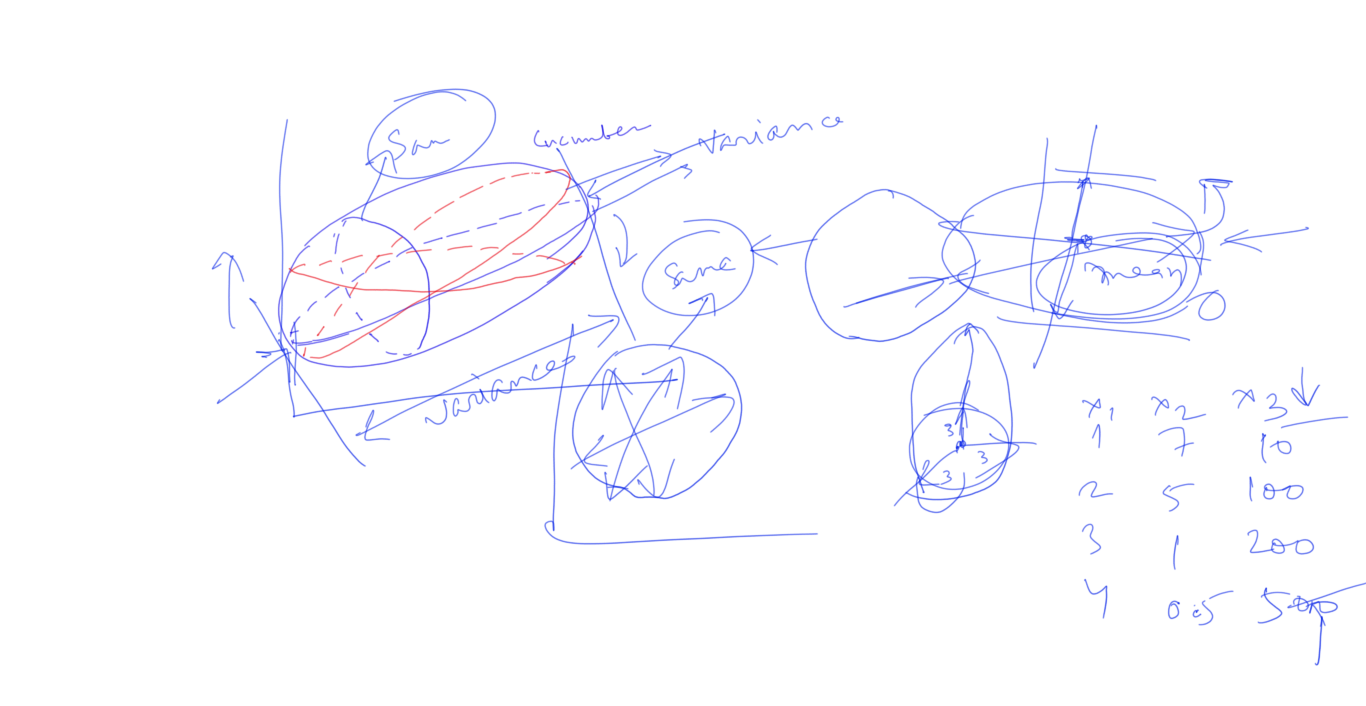 Sam
Cucumber
Variance
Same
mean
variance
3
3
3
x1 x2 x3
1 7 10
2 5 100
3 1 200
4 0.5 500